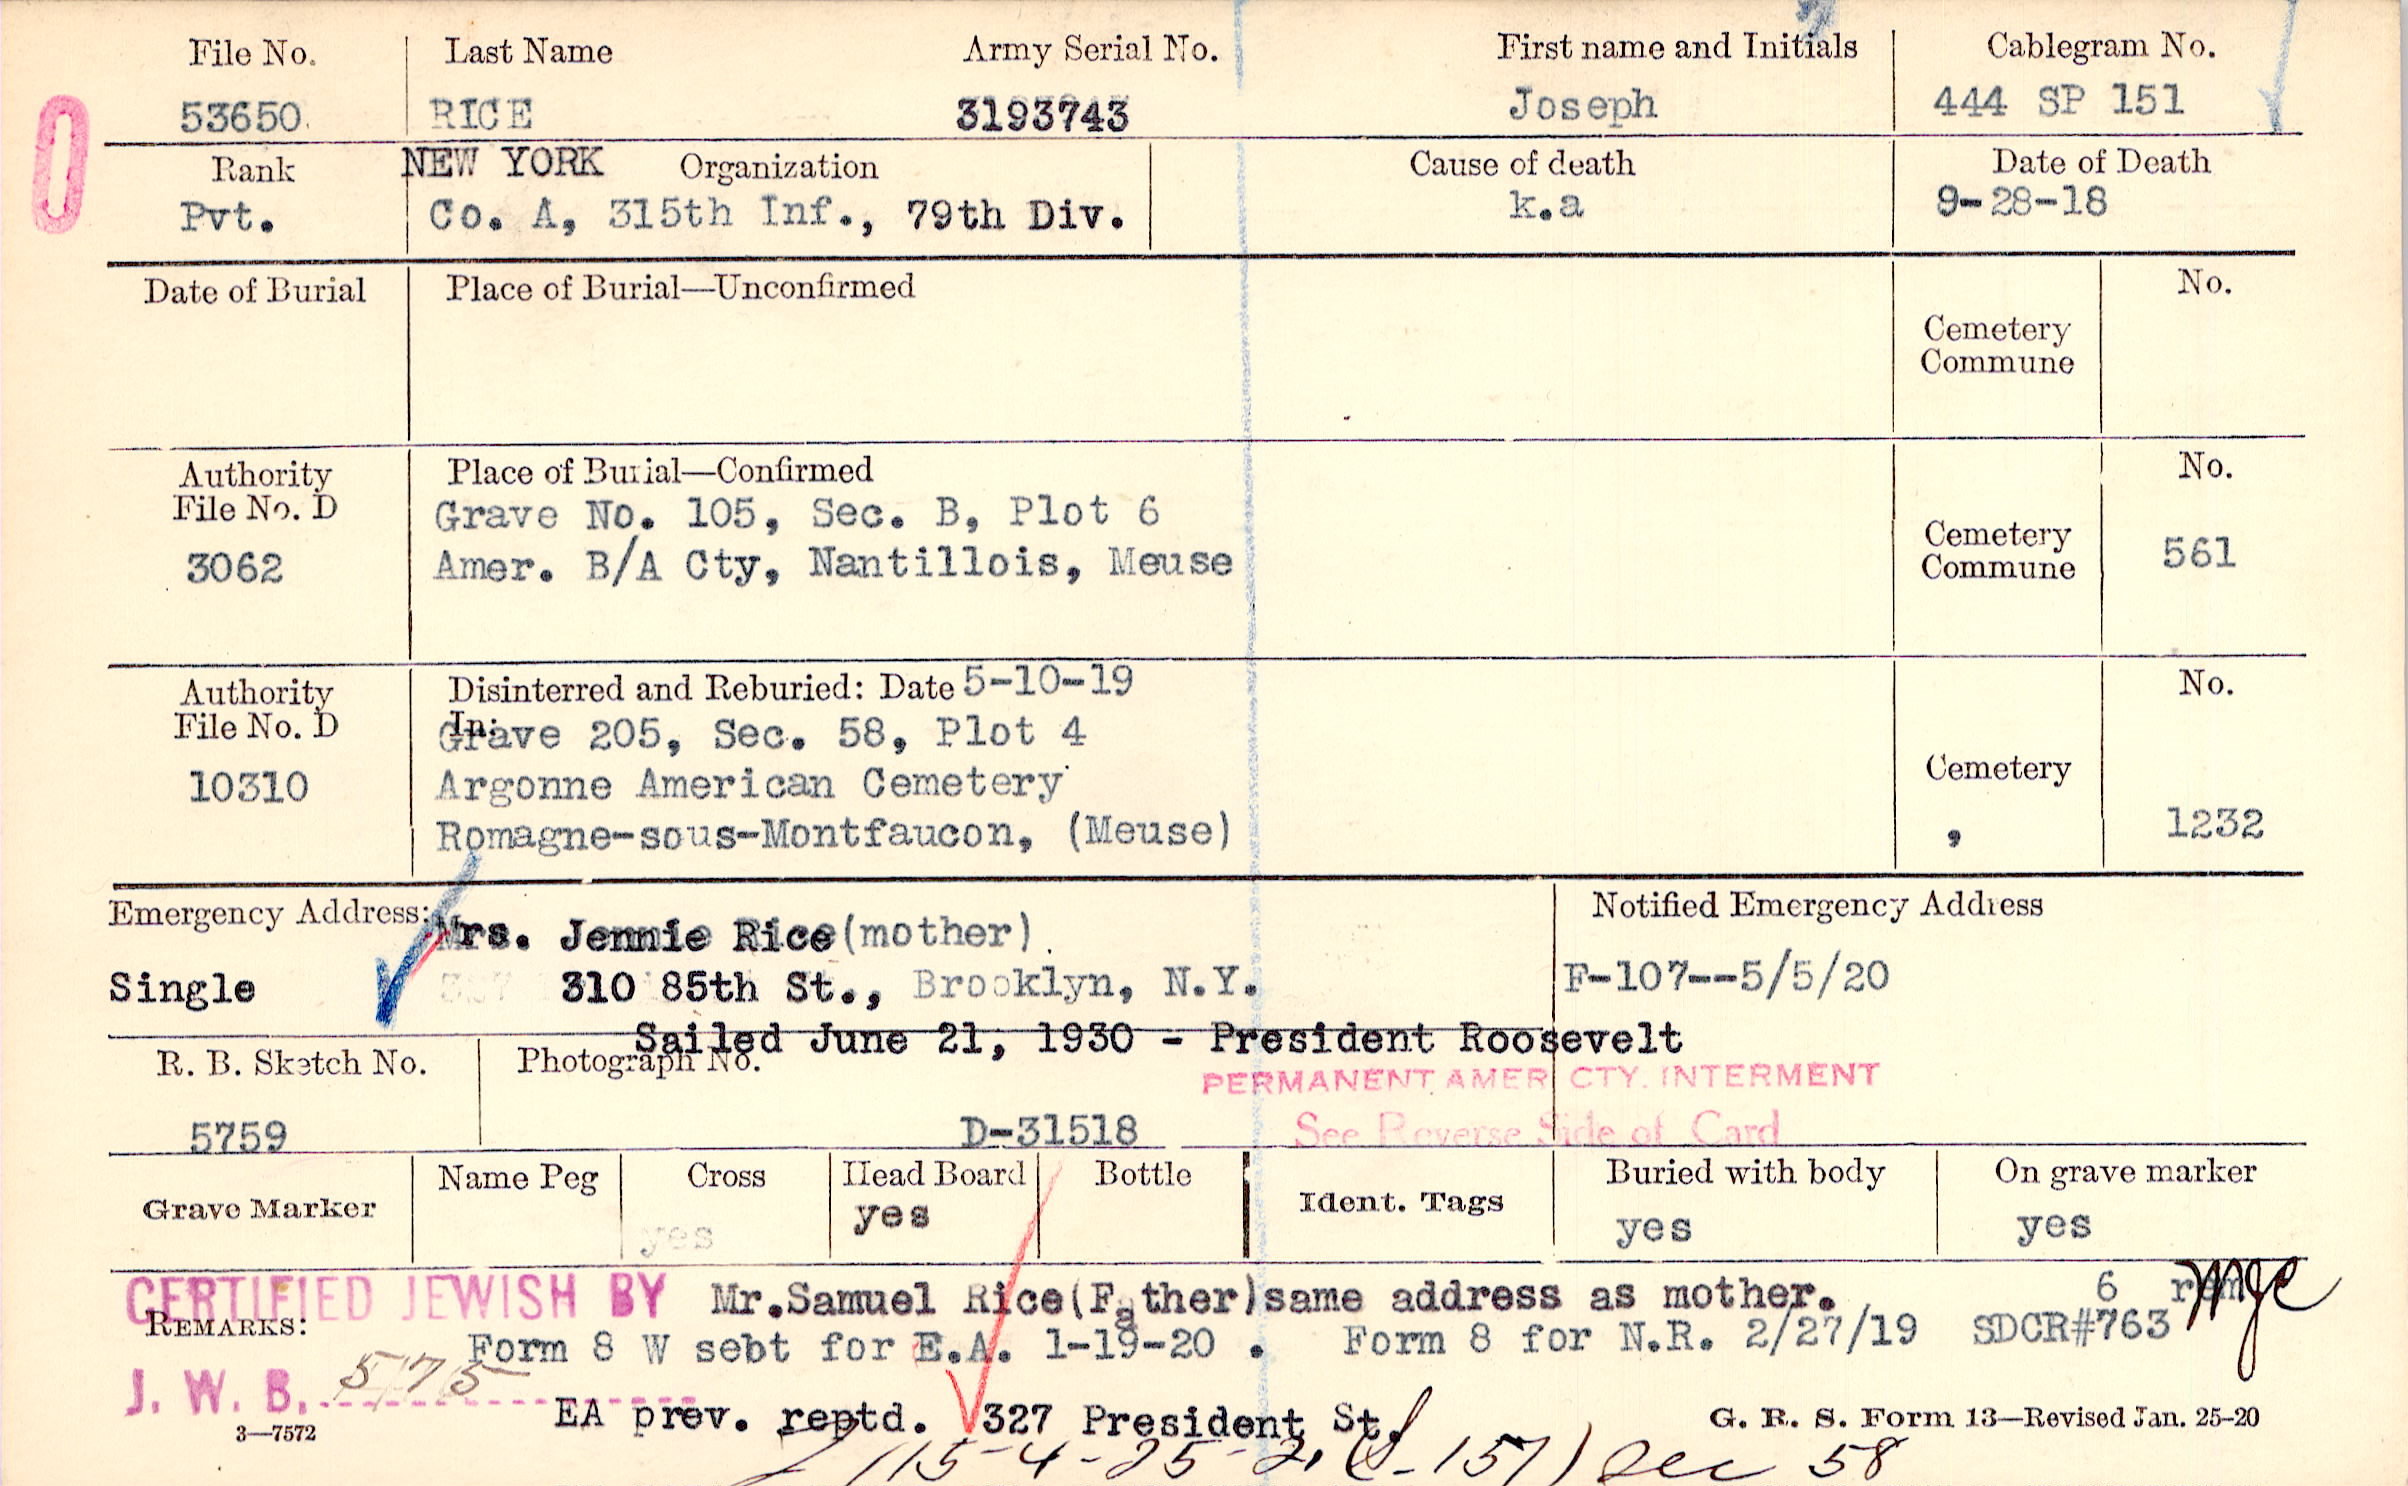 File No. Last Name Army Serial No. First name and Initials Cablegram No.
53650. RICE 3193743 Joseph 444 SP 151
Rank NEW YORK Organization Cause of death Date of Death
Pvt. Co. A, 315th Inf., 79th Div. k.a 9-28-18
Date of Burial Place of Burial—Unconfirmed No.
Cemetery
Commune
Authority Place of Burial—Confirmed No.
File No. D Grave No. 105, Sec. B, Plot 6
3062 Amer. B/A Cty, Nantillois, Meuse Cemetery Commune 561
Authority Disinterred and Reburied: Date 5-10-19 No.
File No. D In: Grave 205, Sec. 58, Plot 4
10310 Argonne American Cemetery Cemetery
Romagne-sous-Montfaucon, (Meuse) , 1232
Emergency Address: Mrs. Jennie Rice(mother) Notified Emergency Address
Single 310 85th St., Brooklyn, N.Y. F-107--5/5/20
Sailed June 21, 1930 - President Roosevelt
R. B. Sketch No. Photograph No.
PERMANENT AMER. CTY. INTERMENT
5759 D-31518 See Reverse Side of Card
Grave Marker Name Peg Cross Head Board Bottle Ident. Tags Buried with body On grave marker
yes yes yes yes
CERTIFIED JEWISH BY Mr.Samuel Rice(Father)same address as mother. 6 rem
REMARKS: Form 8 W sebt for E.A. 1-19-20 . Form 8 for N.R. 2/27/19 SDCR#763
J. W. B. 575
EA prev. reptd. 327 President St.
3—7572 G. R. S. Form 13—Revised Jan. 25-20
Sec 58